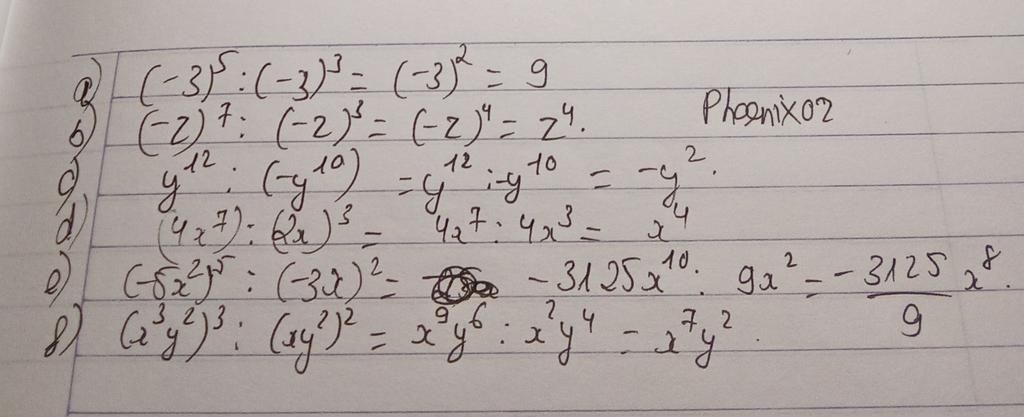 a) (-3)⁵ : (-3)³ = (-3)² = 9
b) (-z)⁷ : (-z)³ = (-z)⁴ = z⁴. Phoenix02
c) y¹² : (-y¹⁰) = y¹² : -y¹⁰ = -y².
d) (4x⁷) : (2x)³ = 4x⁷ : 4x³ = x⁴
e) (-5x²)⁵ : (-3x)² = -3125x¹⁰ : 9x² = -3125/9 x⁸.
f) (x³y²)³ : (xy²)² = x⁹y⁶ : x²y⁴ = x⁷y².